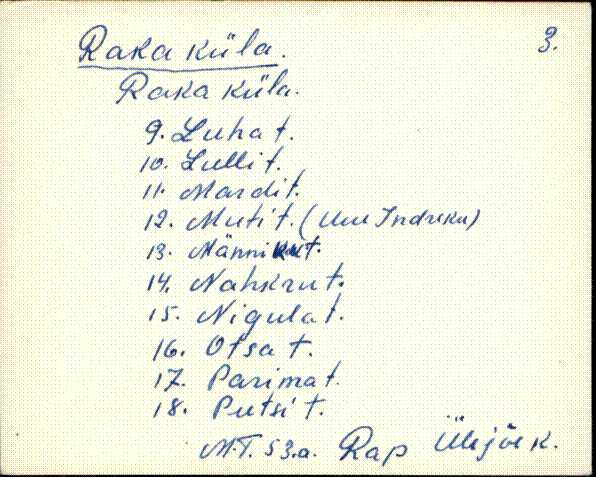 Raka küla. 3.
Raka küla.
9. Luha t.
10. Lulli t.
11. Mardi t.
12. Muti t. (Uue Indreku)
13. Männiku t.
14. Nahkru t.
15. Nigula t.
16. Otsa t.
17. Parima t.
18. Putsi t.
M.T. 53.a. Rap Ülejõe k.